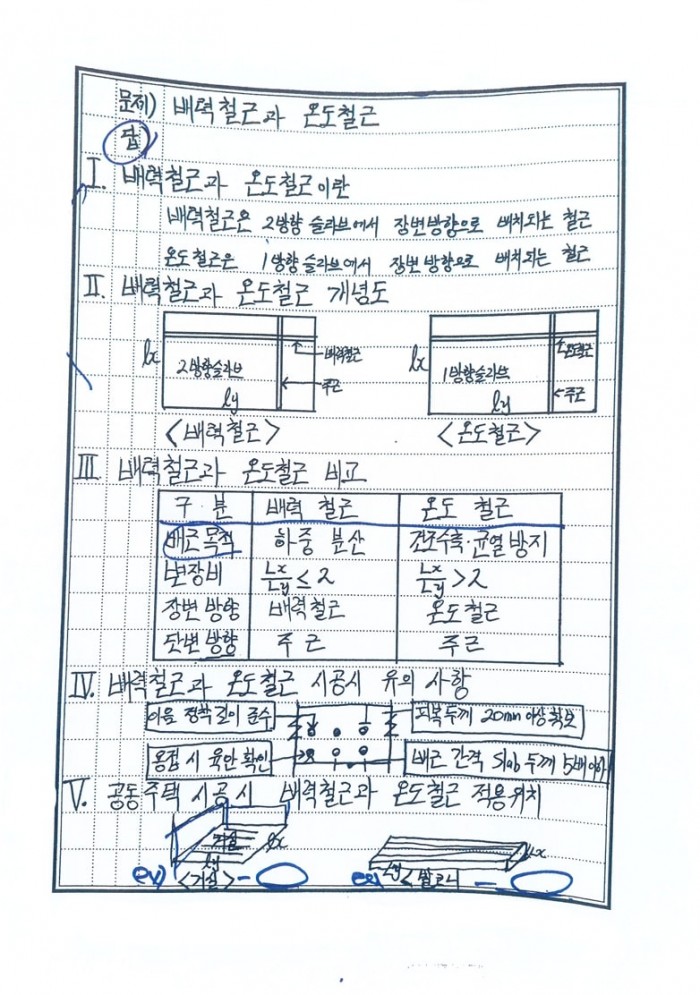 문제) 배력철근과 온도철근
답)
I. 배력철근과 온도철근이란
배력철근은 2방향 슬라브에서 장변방향으로 배치되는 철근
온도철근은 1방향슬라브에서 장변방향으로 배치되는 철근
II. 배력철근과 온도철근 개념도
lx 2방향슬라브 ly 배력철근 주근
lx 1방향슬라브 ly 온도철근 주근
<배력철근> <온도철근>
III. 배력철근과 온도철근 비교
구 분 배력 철근 온도 철근
배근목적 하중 분산 건조수축·균열방지
변장비 Lx/Ly ≤ 2 Lx/Ly > 2
장변 방향 배력철근 온도철근
단변 방향 주근 주근
IV. 배력철근과 온도철근 시공시 유의 사항
이음 정착길이 준수 피복두께 20mm 이상 확보
용접 시 육안 확인 배근 간격 Slab 두께 5배이하
V. 공동주택 시공시 배력철근과 온도철근 적용위치
거실 ly lx
Ly Lx
ex) <거실> - ex) <발코니 -